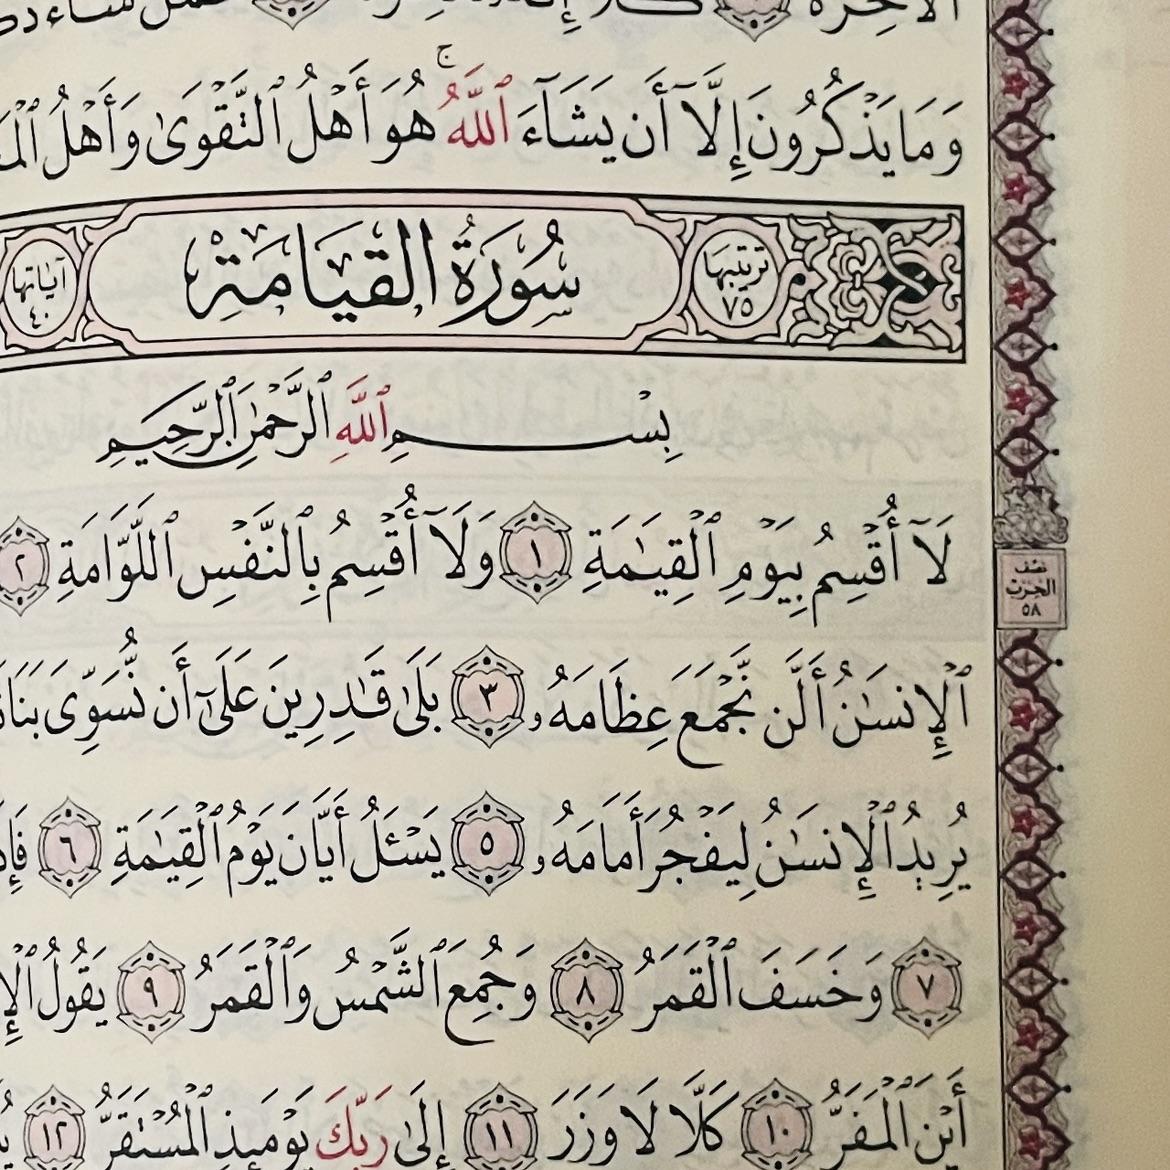 ٱلۡأٓخِرَةَ كَلَّآ إِنَّهُۥ
وَمَا يَذۡكُرُونَ إِلَّآ أَن يَشَآءَ ٱللَّهُۚ هُوَ أَهۡلُ ٱلتَّقۡوَىٰ وَأَهۡلُ
تَرتيبُهَا ٧٥ سُورَةُ القِيَامَةِ آيَاتُهَا ٤٠
بِسۡمِ ٱللَّهِ ٱلرَّحۡمَٰنِ ٱلرَّحِيمِ
لَآ أُقۡسِمُ بِيَوۡمِ ٱلۡقِيَٰمَةِ ١ وَلَآ أُقۡسِمُ بِٱلنَّفۡسِ ٱللَّوَّامَةِ ٢
نصف الحزب ٥٨
ٱلۡإِنسَٰنُ أَلَّن نَّجۡمَعَ عِظَامَهُۥ ٣ بَلَىٰ قَٰدِرِينَ عَلَىٰٓ أَن نُّسَوِّيَ
يُرِيدُ ٱلۡإِنسَٰنُ لِيَفۡجُرَ أَمَامَهُۥ ٥ يَسۡـَٔلُ أَيَّانَ يَوۡمُ ٱلۡقِيَٰمَةِ ٦
٧ وَخَسَفَ ٱلۡقَمَرُ ٨ وَجُمِعَ ٱلشَّمۡسُ وَٱلۡقَمَرُ ٩ يَقُولُ
أَيۡنَ ٱلۡمَفَرُّ ١٠ كَلَّا لَا وَزَرَ ١١ إِلَىٰ رَبِّكَ يَوۡمَئِذٍ ٱلۡمُسۡتَقَرُّ ١٢